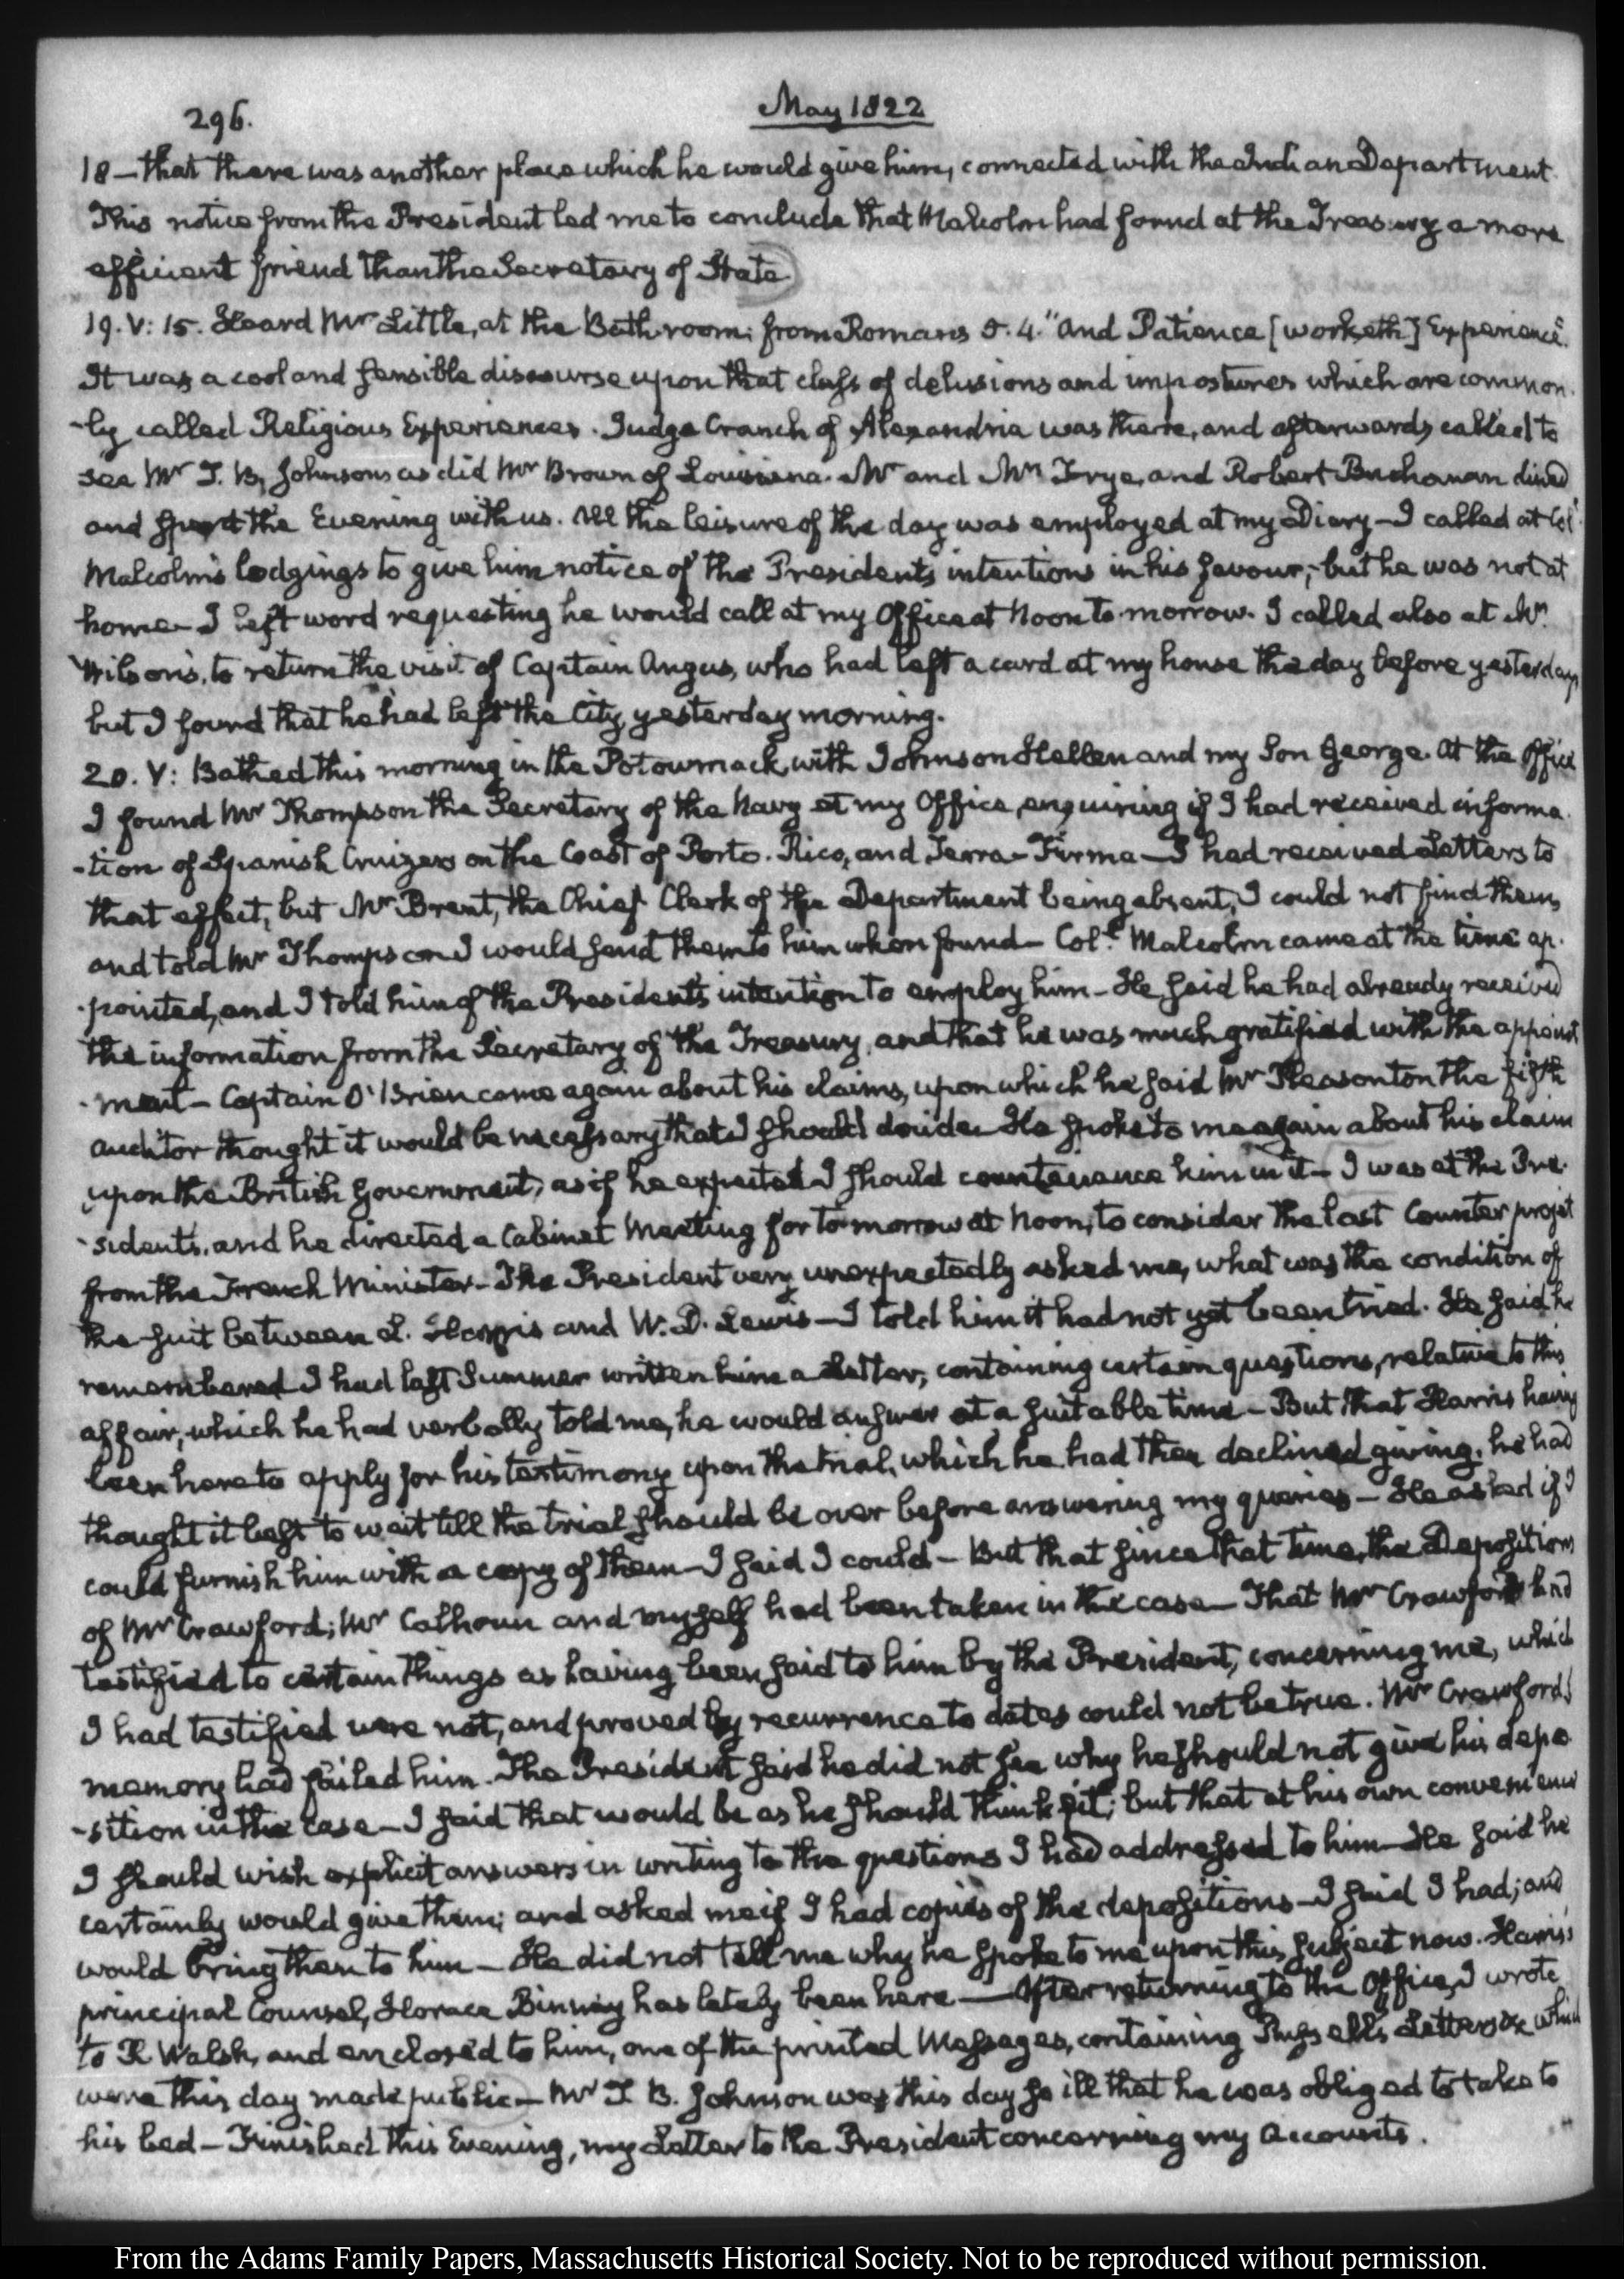 296.
May 1822
18 — that there was another place which he would give him, connected with the Indian Department.
This notice from the President led me to conclude that Malcolm had found at the Treasury a more
efficient friend than the Secretary of State
19. V: 15. Heard Mr Little, at the Bath room: from Romans 5. 4. "And Patience [worketh] Experience."
It was a cool and sensible discourse upon that class of delusions and impostures which are common-
-ly called Religious Experiences. Judge Cranch of Alexandria was there, and afterwards called to
see Mr T. B. Johnson as did Mr Brown of Louisiana. Mr and Mrs Frye, and Robert Buchanan dined
and spent the Evening with us. All the leisure of the day was employed at my Diary — I called at Coll
Malcolm's lodgings to give him notice of the President's intentions in his favour; but he was not at
home — I left word requesting he would call at my Office at Noon to-morrow. I called also at Mrs
Wilson's, to return the visit of Captain Angus, who had left a card at my house the day before yesterday,
but I found that he had left the City yesterday morning.
20. V: Bathed this morning in the Potowmack, with Johnson Hellen and my Son George. At the Office
I found Mr Thompson the Secretary of the Navy at my Office, enquiring if I had received informa-
-tion of Spanish Cruizers on the Coast of Porto-Rico, and Terra-Firma — I had received Letters to
that effect, but Mr Brent, the Chief Clerk of the Department being absent, I could not find them,
and told Mr Thompson I would send them to him when found — Coll Malcolm came at the time ap-
-pointed, and I told him of the President's intention to employ him — He said he had already received
the information from the Secretary of the Treasury, and that he was much gratified with the appoint
-ment — Captain O'Brien came again about his claims, upon which he said Mr Pleasonton the fifth
Auditor thought it would be necessary that I should decide. He spoke to me again about his claim
upon the British Government, as if he expected I should countenance him in it — I was at the Pre-
-sidents, and he directed a Cabinet Meeting for to-morrow at Noon, to consider the last Counter projet
from the French Minister — The President very unexpectedly asked me, what was the condition of
the suit between L. Harris and W. D. Lewis — I told him it had not yet been tried. He said he
remembered I had last Summer written him a Letter, containing certain questions, relative to this
affair, which he had verbally told me, he would answer at a suitable time — But that Harris having
been here to apply for his testimony upon the trial, which he had then declined giving, he had
thought it best to wait till the trial should be over before answering my queries — He asked if I
could furnish him with a copy of them — I said I could — But that since that time, the Depositions
of Mr Crawford, Mr Calhoun and myself had been taken in the case — That Mr Crawford had
testified to certain things as having been said to him by the President, concerning me, which
I had testified were not, and proved by recurrence to dates could not be true. Mr Crawford's
memory had failed him. The President said he did not see why he should not give his depo-
-sition in the case — I said that would be as he should think fit; but that at his own convenience
I should wish explicit answers in writing to the questions I had addressed to him — He said he
certainly would give them; and asked me if I had copies of the depositions — I said I had; and
would bring them to him — He did not tell me why he spoke to me upon this subject now. Harris's
principal Counsel, Horace Binney has lately been here — After returning to the Office, I wrote
to R Walsh, and enclosed to him, one of the printed Messages, containing Russell's Letters &c which
were this day made public — Mr T. B. Johnson was this day so ill that he was obliged to take to
his bed — Finished this Evening, my Letter to the President concerning my Accounts.
From the Adams Family Papers, Massachusetts Historical Society. Not to be reproduced without permission.